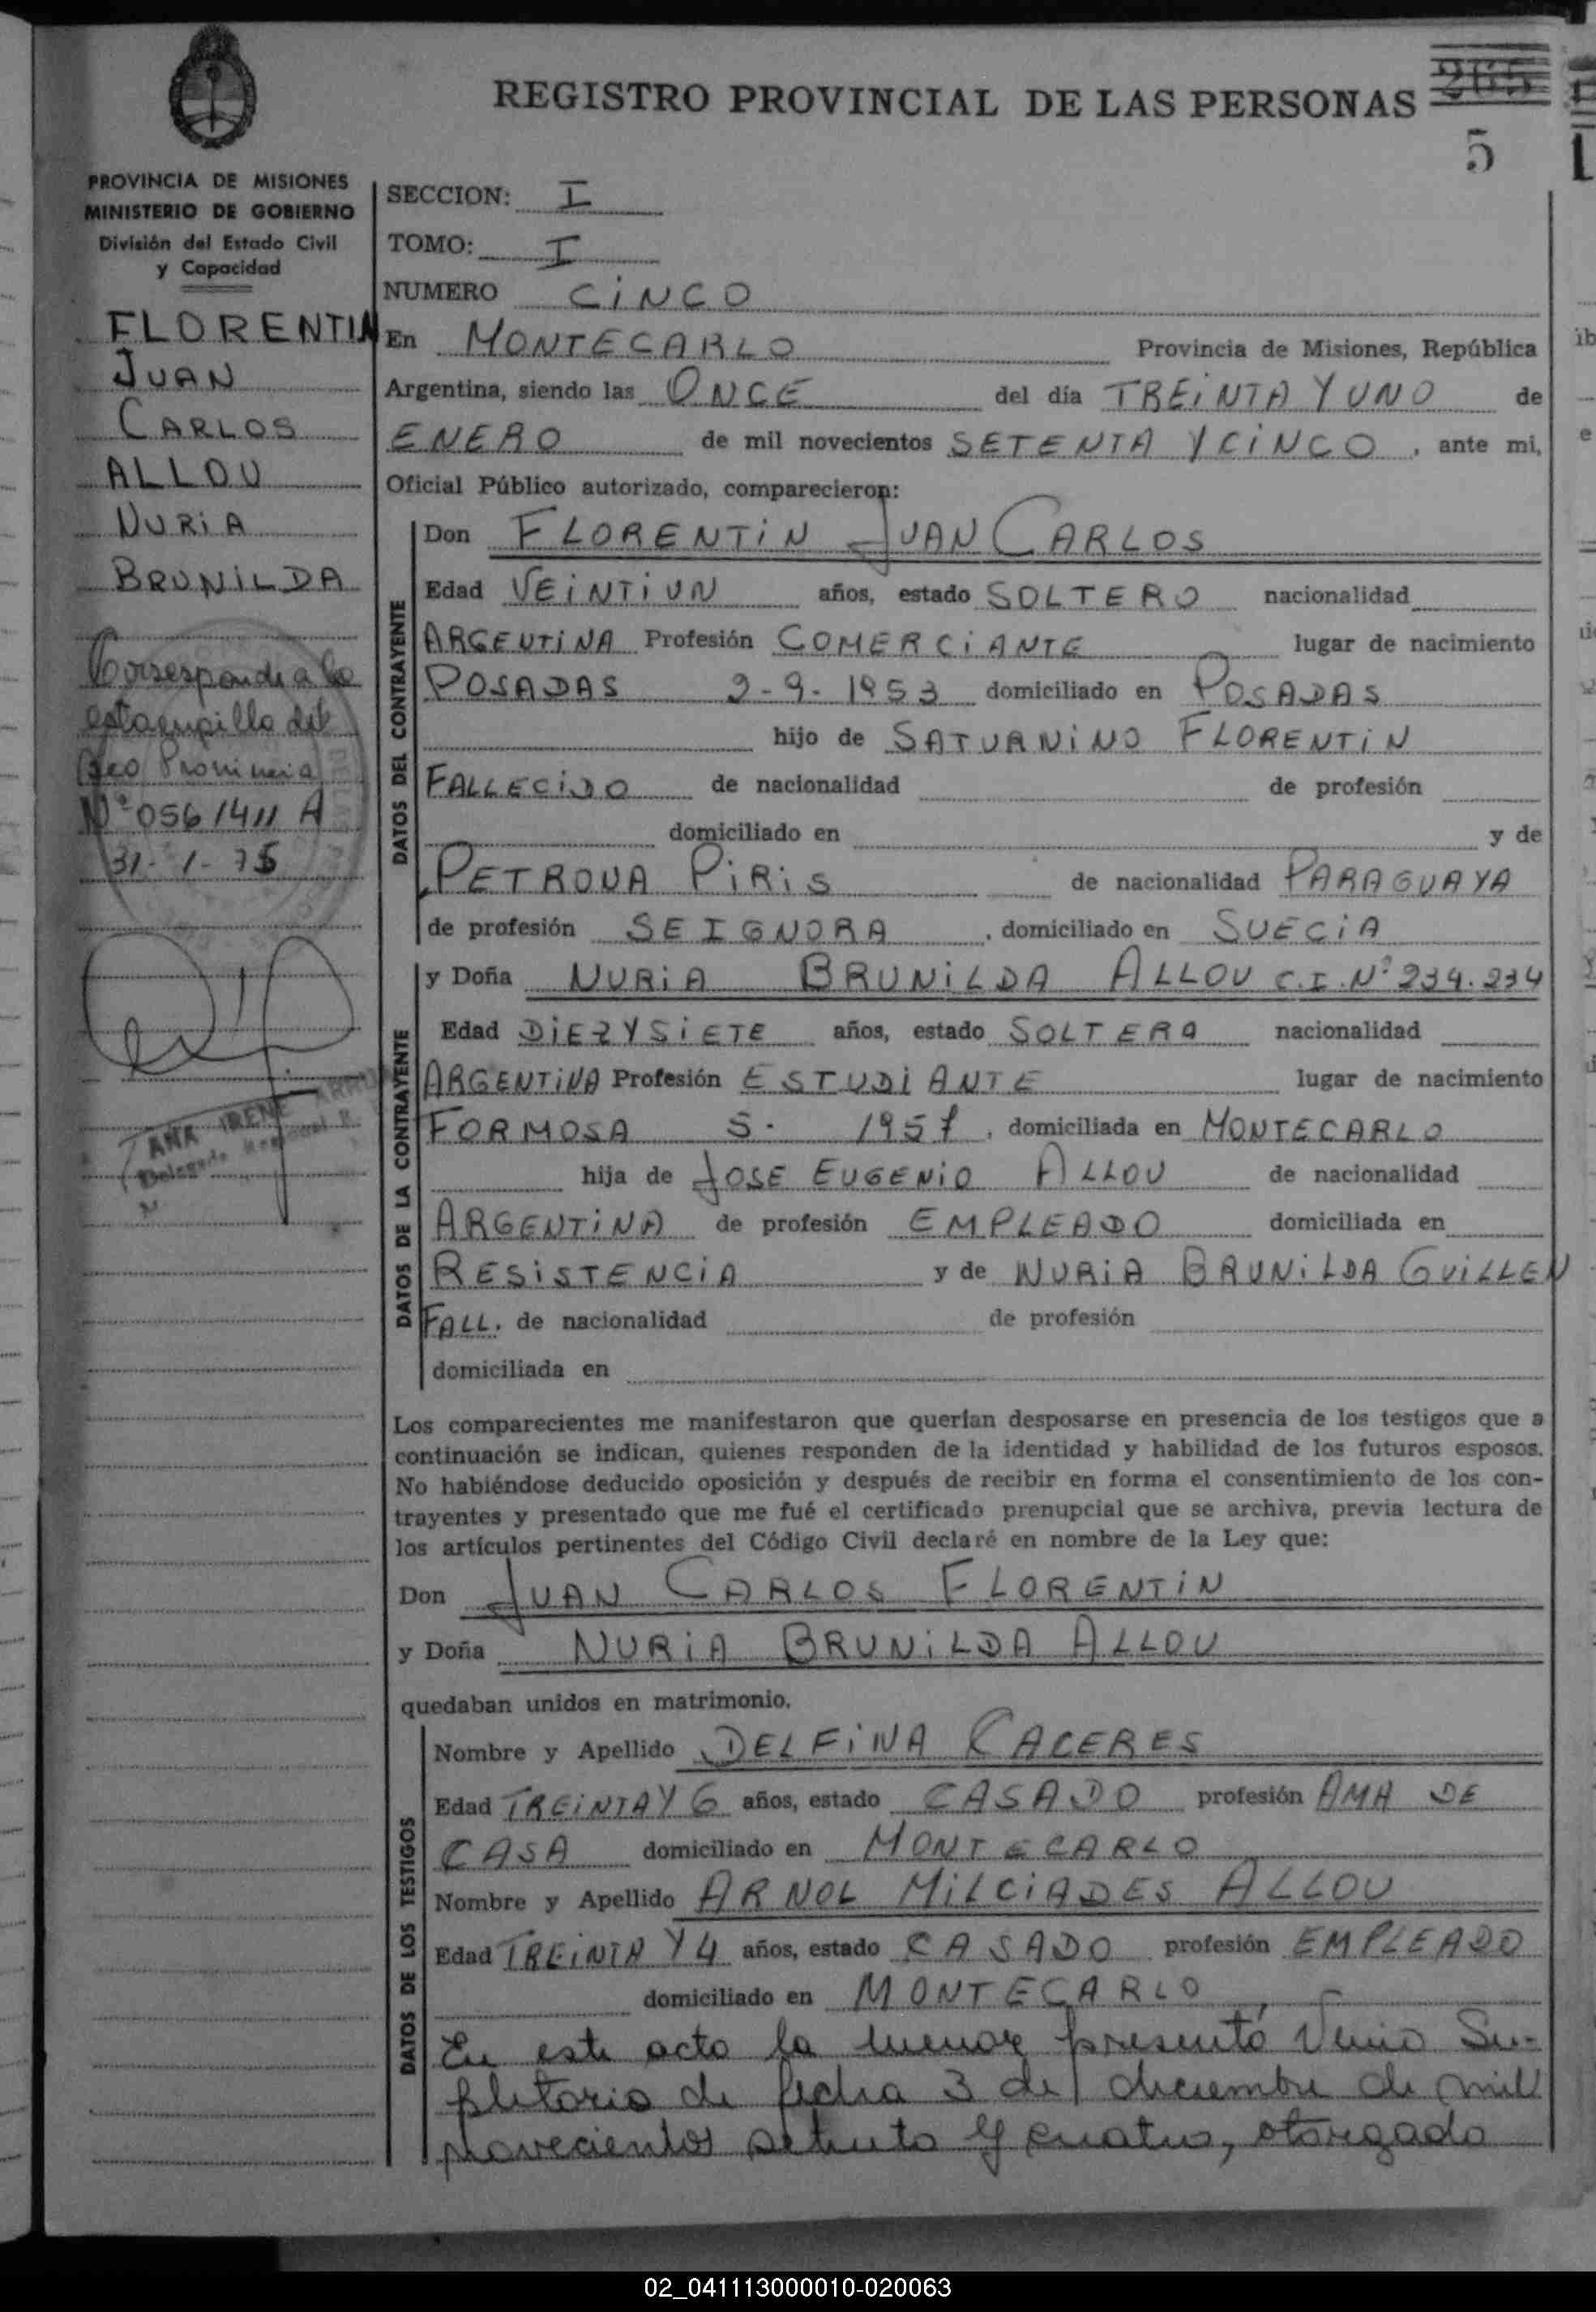 REGISTRO PROVINCIAL DE LAS PERSONAS
265
5
PROVINCIA DE MISIONES
MINISTERIO DE GOBIERNO
División del Estado Civil
y Capacidad
FLORENTIN
JUAN
CARLOS
ALLOU
NURIA
BRUNILDA
Corresponde a la
estampilla del
Provincia
Nº 0561411 A
31-1-75
ANA IRENE
SECCION: I
TOMO: I
NUMERO CINCO
En MONTECARLO Provincia de Misiones, República
Argentina, siendo las ONCE del día TREINTA Y UNO de
ENERO de mil novecientos SETENTA Y CINCO, ante mi,
Oficial Público autorizado, comparecieron:
DATOS DEL CONTRAYENTE
Don FLORENTIN JUAN CARLOS
Edad VEINTIUN años, estado SOLTERO nacionalidad
ARGENTINA Profesión COMERCIANTE lugar de nacimiento
POSADAS 2-9-1953 domiciliado en POSADAS
hijo de SATURNINO FLORENTIN
FALLECIDO de nacionalidad de profesión
domiciliado en y de
PETRONA PIRIS de nacionalidad PARAGUAYA
de profesión SEIGNORA, domiciliado en SUECIA
DATOS DE LA CONTRAYENTE
y Doña NURIA BRUNILDA ALLOU C.I. Nº 234.234
Edad DIEZ Y SIETE años, estado SOLTERA nacionalidad
ARGENTINA Profesión ESTUDIANTE lugar de nacimiento
FORMOSA 5. 1957, domiciliada en MONTECARLO
hija de JOSE EUGENIO ALLOU de nacionalidad
ARGENTINA de profesión EMPLEADO domiciliada en
RESISTENCIA y de NURIA BRUNILDA GUILLEN
FALL. de nacionalidad de profesión
domiciliada en
Los comparecientes me manifestaron que querían desposarse en presencia de los testigos que a
continuación se indican, quienes responden de la identidad y habilidad de los futuros esposos.
No habiéndose deducido oposición y después de recibir en forma el consentimiento de los con-
trayentes y presentado que me fué el certificado prenupcial que se archiva, previa lectura de
los artículos pertinentes del Código Civil declaré en nombre de la Ley que:
Don JUAN CARLOS FLORENTIN
y Doña NURIA BRUNILDA ALLOU
quedaban unidos en matrimonio.
DATOS DE LOS TESTIGOS
Nombre y Apellido DELFINA CACERES
Edad TREINTA Y 6 años, estado CASADO profesión AMA DE
CASA domiciliado en MONTECARLO
Nombre y Apellido ARNOL MILCIADES ALLOU
Edad TREINTA Y 4 años, estado CASADO profesión EMPLEADO
domiciliado en MONTECARLO
En este acto la menor presentó Venia Su-
pletoria de fecha 3 de diciembre de mil
novecientos setenta y cuatro, otorgada
02_041113000010-020063